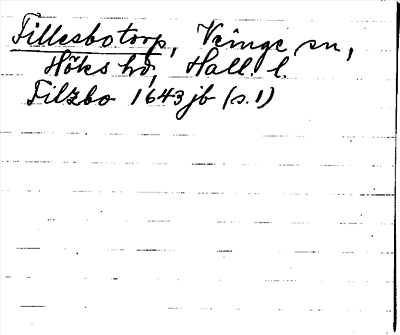 Tillesbotorp, Veinge sn,
Höks hd, Hall. l.
Tilzbo 1643 jb (s. 1)